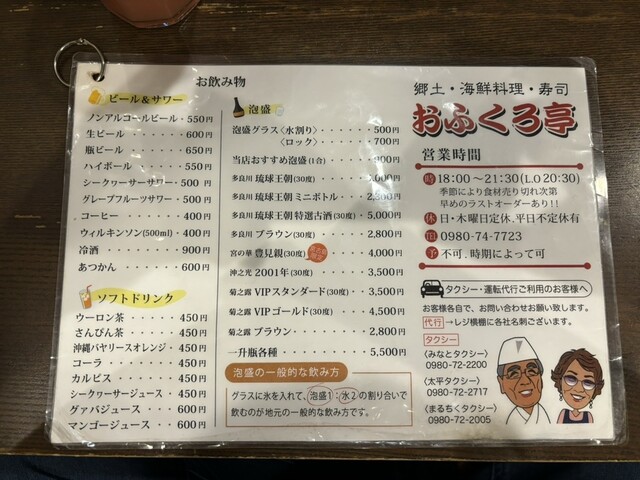 お飲み物
ビール＆サワー
ノンアルコールビール・550円
生ビール ・・・・・・600円
瓶ビール ・・・・・・650円
ハイボール ・・・・・550円
シークヮーサーサワー・500 円
グレープフルーツサワー・500 円
コーヒー ・・・・・・400円
ウィルキンソン(500ml)・400円
冷酒 ・・・・・・・・900円
あつかん ・・・・・・600円
ソフトドリンク
ウーロン茶 ・・・・・450円
さんぴん茶 ・・・・・450円
沖縄バヤリースオレンジ・450円
コーラ ・・・・・・・450円
カルピス ・・・・・・450円
シークヮーサージュース・450円
グァバジュース ・・・600円
マンゴージュース ・・600円
泡盛
泡盛グラス〈水割り〉・・・・・・500円
〈ロック〉・・・・・・700円
当店おすすめ泡盛(1合)・・・・900円
多良川 琉球王朝(30度)・・・・,000円
多良川 琉球王朝ミニボトル・・・2,200円
多良川 琉球王朝 特選古酒(30度)・5,000円
多良川 ブラウン(30度)・・・・・2,800円
宮の華 豊見親(30度) 4,000円
沖之光 2001年(30度)・・・・・3,500円
菊之露 VIPスタンダード(30度)・・3,500円
菊之露 VIPゴールド(30度)・・・・4,500円
菊之露 ブラウン・・・・・・・・2,800円
一升瓶各種 ・・・・・・・・・5,500円
泡盛の一般的な飲み方
グラスに氷を入れて、泡盛1：水2の割り合いで
飲むのが地元の一般的な飲み方です。
郷土・海鮮料理・寿司
おふくろ亭
営業時間
時 18:00〜21:30(L.O 20:30)
季節により食材売り切れ次第
早めのラストオーダーあり!!
休 日・木曜日定休、平日不定休有
☎ 0980-74-7723
予 不可、時期によって可
タクシー・運転代行ご利用のお客様へ
お客様各自で、お問い合わせお願い致します。
代行→レジ横棚に各社名刺ございます。
タクシー
〈みなとタクシー〉
0980-72-2200
〈太平タクシー〉
0980-72-2717
〈まるちくタクシー〉
0980-72-2005